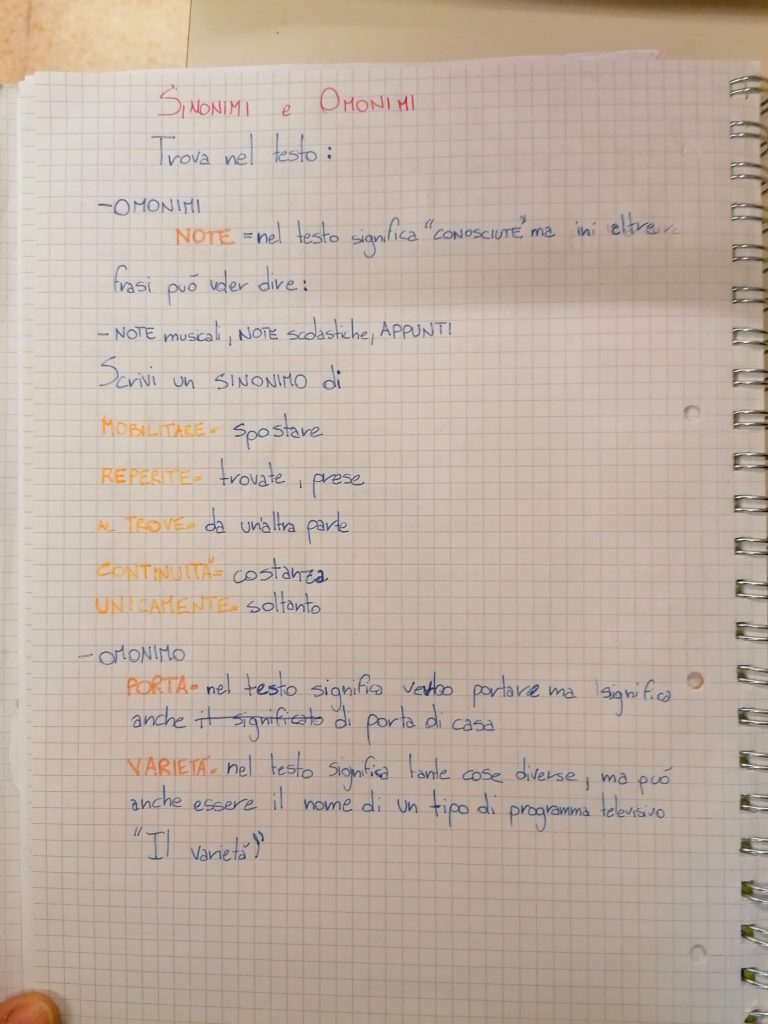 SINONIMI e OMONIMI
Trova nel testo:
- OMONIMI
NOTE = nel testo significa "CONOSCIUTE" ma ini altre
frasi può voler dire:
- NOTE musicali, NOTE scolastiche, APPUNTI
Scrivi un SINONIMO di
MOBILITARE= spostare
REPERITE= trovate, prese
AL TROVE= da un'altra parte
CONTINUITÀ= costanza
UNICAMENTE= soltanto
- OMONIMO
PORTA= nel testo significa verbo portare ma significa
anche il significato di porta di casa
VARIETÀ= nel testo significa tante cose diverse, ma può
anche essere il nome di un tipo di programma televisivo
"Il varietà"